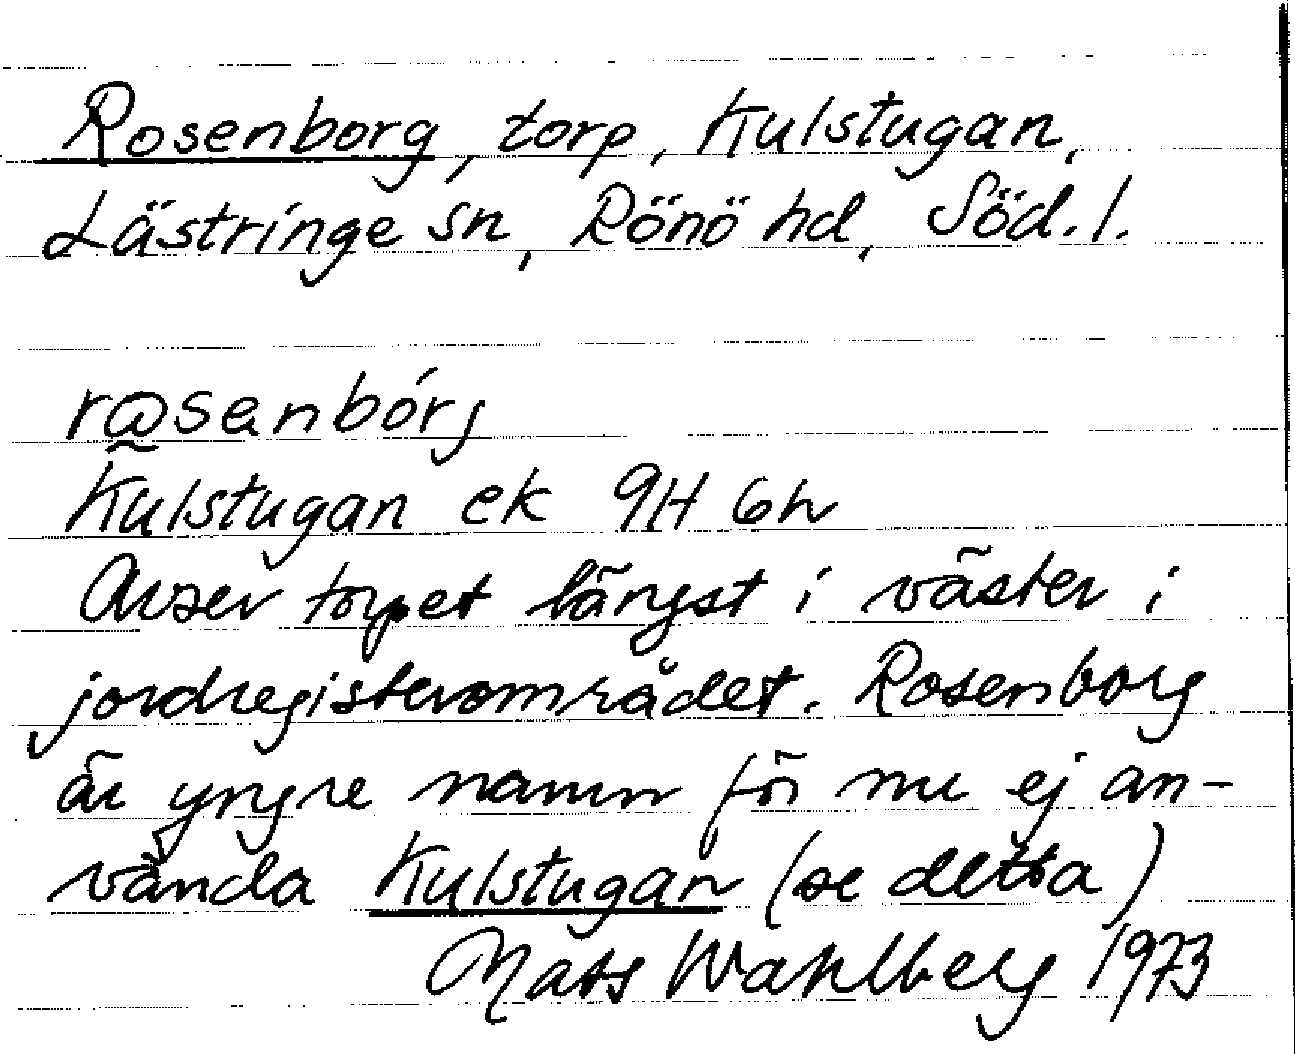 Rosenborg, torp, Kulstugan,
Lästringe sn, Rönö hd, Söd. l.
r@senbórj
Kulstugan ek 9H 6h
Avser torpet längst i väster i
jordregisterområdet. Rosenborg
är yngre namn för nu ej an-
vända Kulstugan (se detta)
Mats Wahlberg 1973